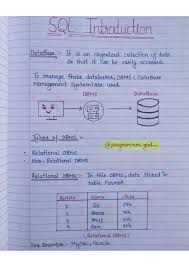 SQL Introduction
DataBase :- It is an organized collection of data
so that it can be easily accessed.
To manage these databases, DBMS (DataBase
Management System) are used.
DBMS
DataBase
Types of DBMS :-
@programmer_girl__
• Relational DBMS
• Non-Relational DBMS
Relational DBMS :- In this DBMS, data stored in
table format
RollNo Name Class
1
2
3
4 Ram
(Relational DBMS)
MySQL, Oracle